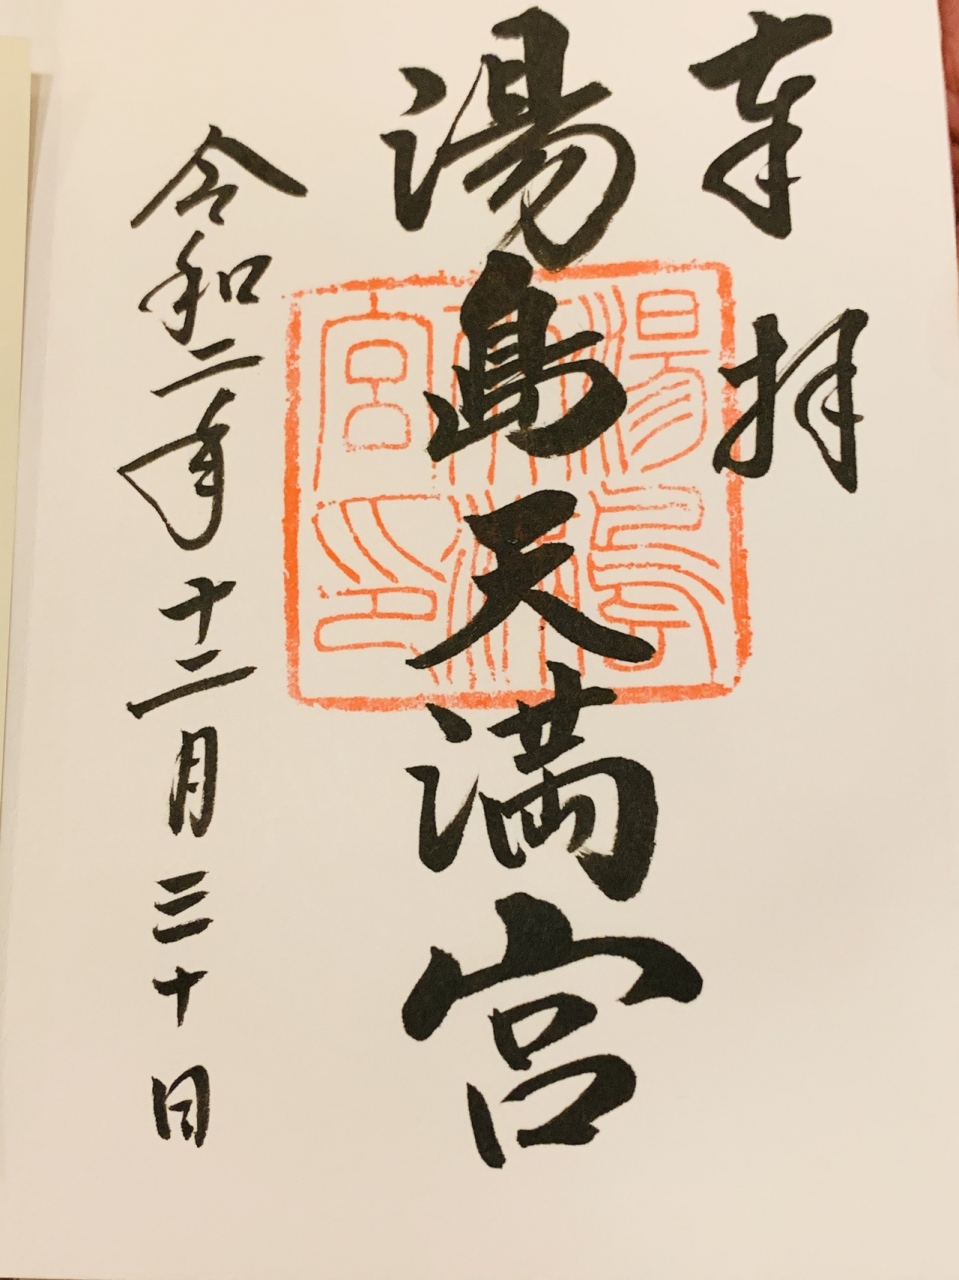 奉拝
湯島天満宮
令和二年十二月三十日
湯島
天満
宮印